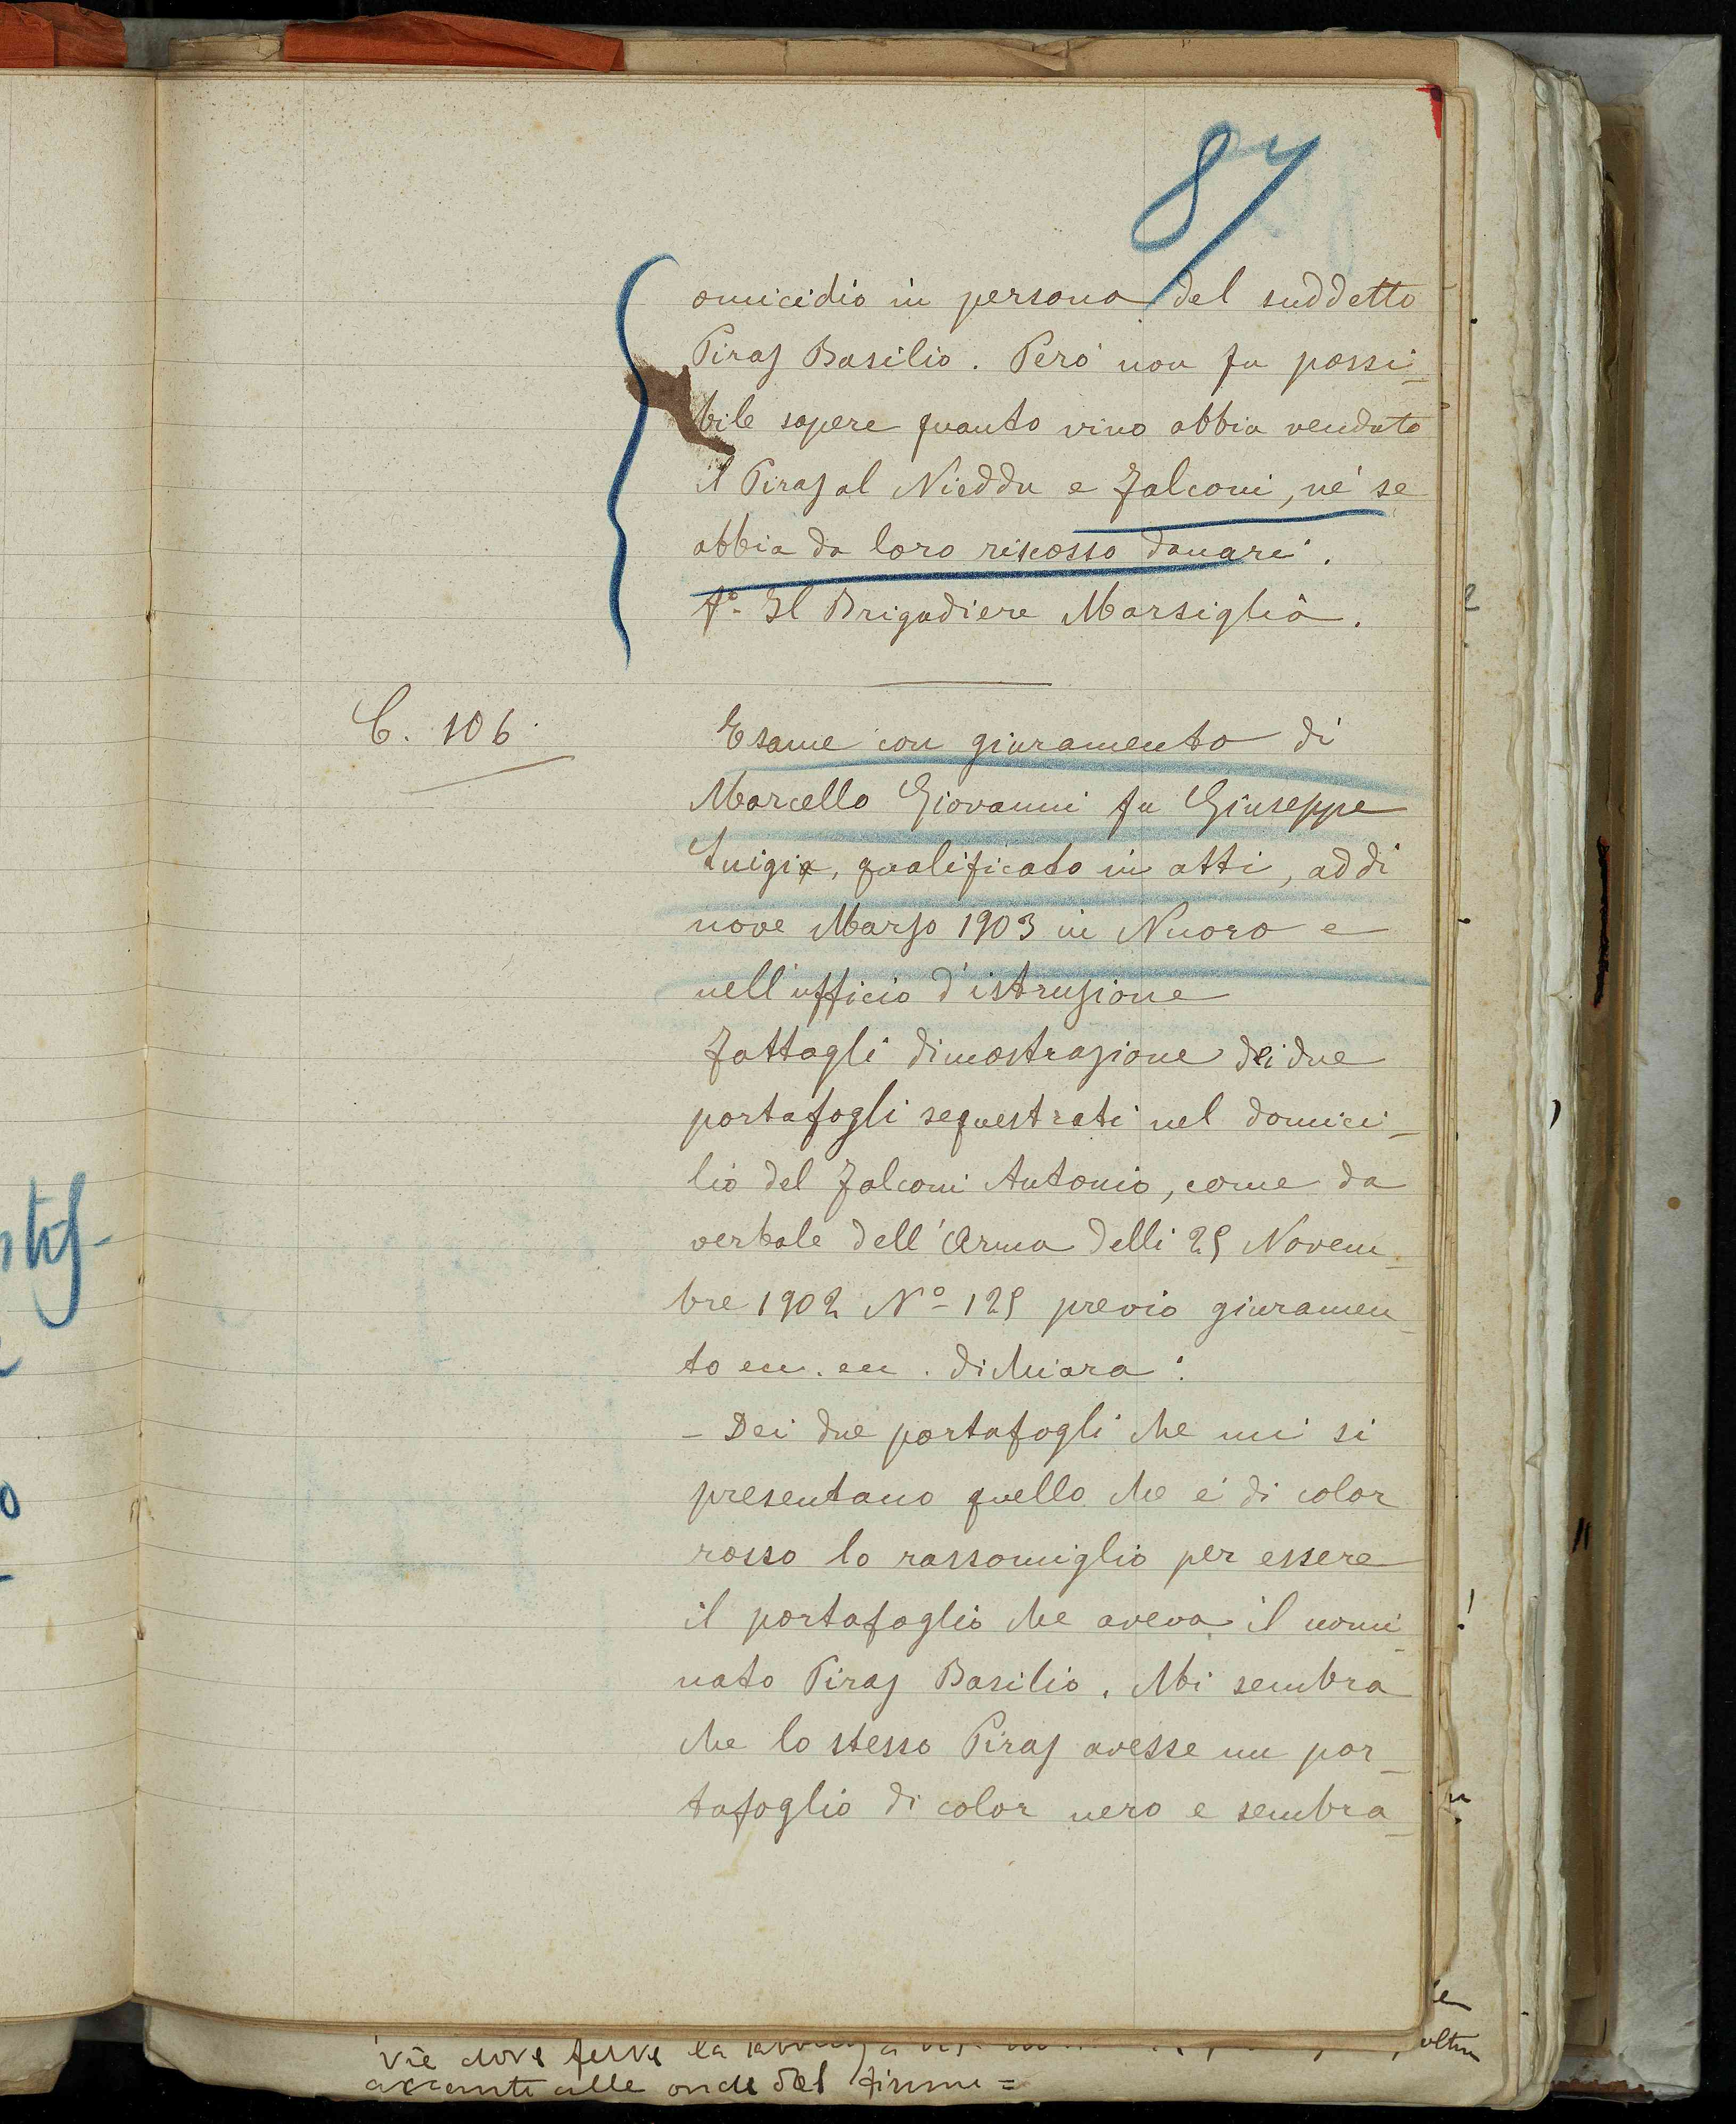 87
omicidio in persona del suddetto
Piras Basilio. Però non fu possi-
bile sapere quanto vino abbia venduto
il Piras al Nieddu e Falconi, nè se
abbia da loro riscosso danari.
fº Il Brigadiere Marsiglia.
C. 106
Esame con giuramento di
Marcello Giovanni fu Giuseppe
Luigi, qualificato in atti, addì
nove Marzo 1903 in Nuoro e
nell'ufficio d'istruzione
Fattagli dimostrazione dei due
portafogli sequestrati nel domici-
lio del Falconi Antonio, come da
verbale dell'Arma delli 25 Novem-
bre 1902 Nº 125 previo giuramen-
to dichiara:
- Dei due portafogli che mi si
presentano quello che è di color
rosso lo rassomiglio per essere
il portafoglio che aveva il nomi-
nato Piras Basilio. Mi sembra
che lo stesso Piras avesse un por-
tafoglio di color nero e sembra-
vie dove ferve la
alle onde del fiume =